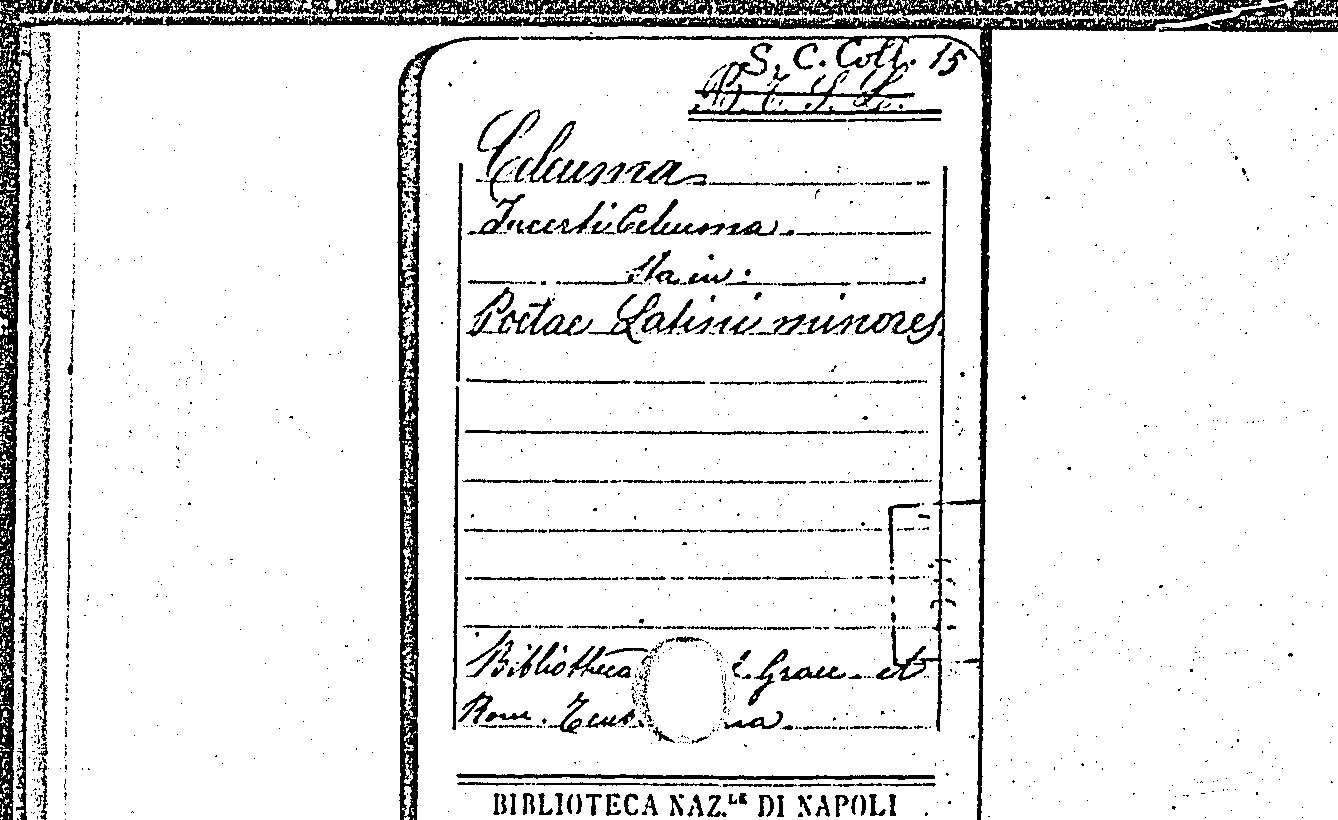 S. C. Coll. 15
B. T. S. L.
Celeuma
Incerti Celeuma.
Sta in:
Poetae Latini minores
Bibliotheca Graec. et
Rom. Teub na
BIBLIOTECA NAZ.LE DI NAPOLI